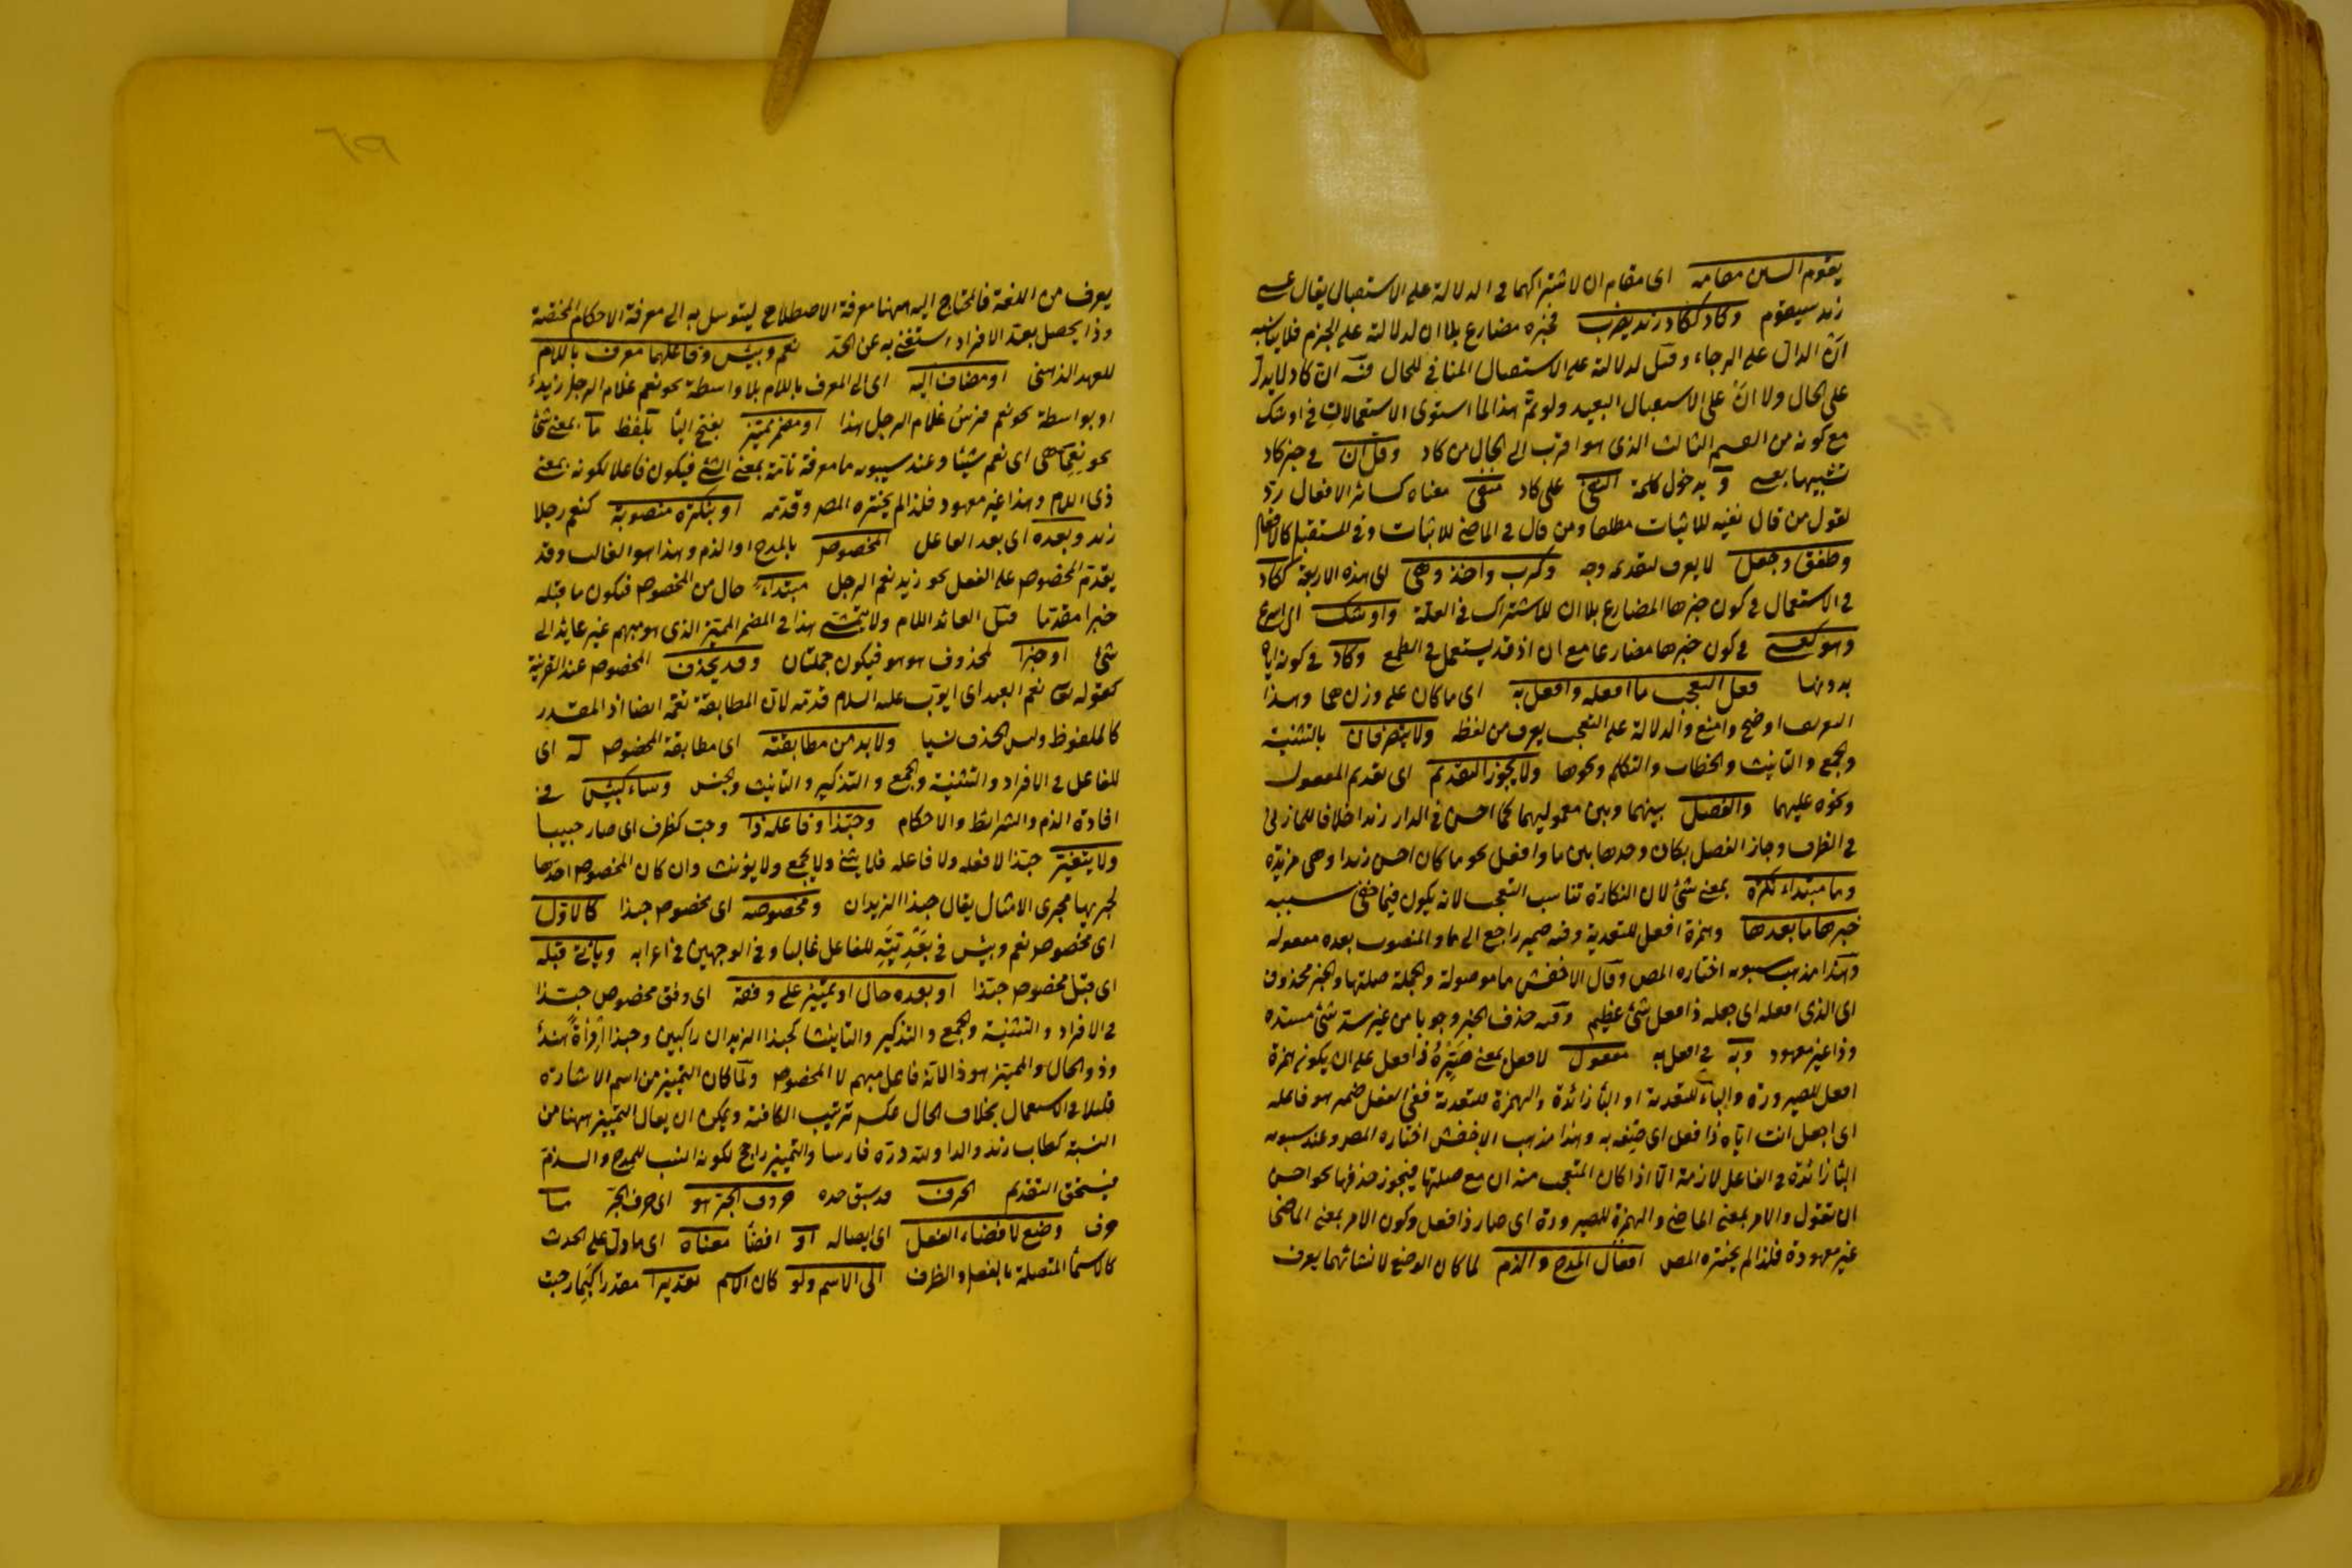 يقوم السين مقامه اى مقام ان لاشتراكهما فى الدلالة على الاستقبال يقال عسى
زيد سيقوم وكاد ككاد زيد يضرب فخبره مضارع بلا ان لدلالته على الجزم فلا يناسبه
ان الدال على الرجاء وقيل لدلالته على الاستقبال المنافى للحال فيه ان كاد لا يدل
على الحال ولا ان على الاستقبال البعيد ولو تم هذا لما استوى الاستعمالات فى اوشك
مع كونه من القسم الثالث الذى هو اقرب الى الحال من كاد وقل ان فى خبر كاد
تشبيها بعسى وبدخول كلمة النفى على كاد منفى معناه كسائر الافعال رد
لقول من قال نفيه للاثبات مطلقا ومن قال فى الماضى للاثبات وفى المستقبل كالافعال
وطفق وجعل لا يعرف لتقديمه وجه وكرب واخذ وهى اى هذه الاربعة ككاد
فى الاستعمال فى كون خبرها المضارع بلا ان للاشتراك فى العلة واوشك اى اسرع
وهو كعسى فى كون خبرها مضارعا مع ان اذ قد يستعمل فى الطمع وكاد فى كونه اياه
بدونها فعل التعجب ما افعله وافعل به اى ما كان على وزن هما وهذا
التعريف اوضح وامنع والدلالة على التعجب يعرف من لفظه ولا يتصرفان بالتثنية
والجمع والتانيث والخطاب والتكلم ونحوها ولا يجوز التقديم اى تقديم المعمول
ونحوه عليهما والفصل بينهما وبين معموليهما كما احسن فى الدار زيدا خلافا للمازنى
فى الظرف وجاز الفصل بكان وحدها بين ما وافعل نحو ما كان احسن زيدا وهى مزيدة
وما مبتداء نكرة بمعنى شئ لان النكارة تناسب التعجب لانه يكون فيما خفى سببه
خبرها ما بعدها وهمزة افعل للتعدية وفيه ضمير راجع الى ما والمنصوب بعده معموله
وهذا مذهب سيبويه اختاره المص وقال الاخفش ما موصولة والجملة صلتها والخبر محذوف
اى الذى افعله اى جعله ذا فعل شئ عظيم وفيه حذف الخبر وجوبا من غير سد شئ مسده
وذا غير معهود وبه فى افعل به مفعول لافعل بمعنى صيره ذا فعل على ان يكون همزة
افعل للصيرورة والباء للتعدية او الباء زائدة والهمزة للتعدية ففى افعل ضمير هو فاعله
اى اجعل انت اياه ذا فعل اى صفه به وهذا مذهب الاخفش اختاره المص وعند سيبويه
الباء زائدة فى الفاعل لازمة الا اذا كان المتعجب منه ان مع صلتها فيجوز حذفها نحو احسن
ان تقول والامر بمعنى الماضى والهمزة للصيرورة اى صار ذا فعل وكون الامر بمعنى الماضى
غير معهودة فلذا لم يختره المص افعال المدح والذم لما كان الوضع لانشائهما يعرف
يعرف من اللغة فالمحتاج اليه ههنا معرفة الاصطلاح ليتوسل به الى معرفة الاحكام المختصة
وذا يحصل بعد الافراد استغنى به عن الحد نعم وبئس وفاعلهما معرف باللام
للعهد الذهنى او مضاف اليه اى الى المعرف باللام بلا واسطة نحو نعم غلام الرجل زيد
او بواسطة نحو نعم فرس غلام الرجل هذا او مضمر مميز بفتح الياء بلفظ ما بمعنى شئ
نحو نعما هى اى نعم شيئا وعند سيبويه ما معرفة تامة بمعنى الشئ فيكون فاعلا لكونه بمعنى
ذى اللام وهذا غير معهود فلذا لم يختره المص وقدمه او بنكرة منصوبة كنعم رجلا
زيد وبعده اى بعد الفاعل المخصوص بالمدح او الذم وهذا هو الغالب وقد
يقدم المخصوص على الفعل نحو زيد نعم الرجل مبتداء حال من المخصوص فيكون ما قبله
خبرا مقدما قيل العائد اللام ولا يتمشى هذا فى المضمر المميز الذى هو مبهم غير عايد الى
شئ او خبرا لمحذوف هو هو فيكون جملتان وقد يحذف المخصوص عند القرينة
كقوله تعا نعم العبد اى ايوب عليه السلام قدمه لان المطابقة تعمه ايضا اذ المقدر
كالملفوظ وليس الحذف نسيا ولا بد من مطابقته اى مطابقة المخصوص له اى
للفاعل فى الافراد والتثنية والجمع والتذكير والتانيث والجنس وساء كبئس فى
افادة الذم والشرائط والاحكام وحبذا وفاعله ذا وحب كظرف اى صار حبيبا
ولا يتغير حبذا لا فعله ولا فاعله فلا يثنى ولا يجمع ولا يؤنث وان كان المخصوص احدها
لجريها مجرى الامثال يقال حبذا الزيدان ومخصوصه اى مخصوص حبذا كالاول
اى مخصوص نعم وبئس فى بعديته للفاعل غالبا وفى الوجهين فى اعرابه وياتى قبله
اى قبل مخصوص حبذا او بعده حال او تمييز على وفقه اى وفق مخصوص حبذا
فى الافراد والتثنية والجمع والتذكير والتانيث كحبذا الزيدان راكبين وحبذا امراة هند
وذو الحال والمميز هو ذا لانه فاعل مبهم لا المخصوص ولما كان التمييز من اسم الاشارة
قليلا فى الاستعمال بخلاف الحال عكس ترتيب الكافية ويمكن ان يقال التمييز ههنا من
النسبة كطاب زيد والدا ولله دره فارسا والتمييز راجح لكونه انسب للمدح والذم
فيستحق التقديم الحرف قد سبق حده حروف الجر هو اى حرف الجر ما
حرف وضع لافضاء الفعل اى ايصاله او افضا معناه اى ما دل على الحدث
كالاسماء المتصلة بالفعل والظرف الى الاسم ولو كان الاسم تقديرا مقدرا كبما رحبت